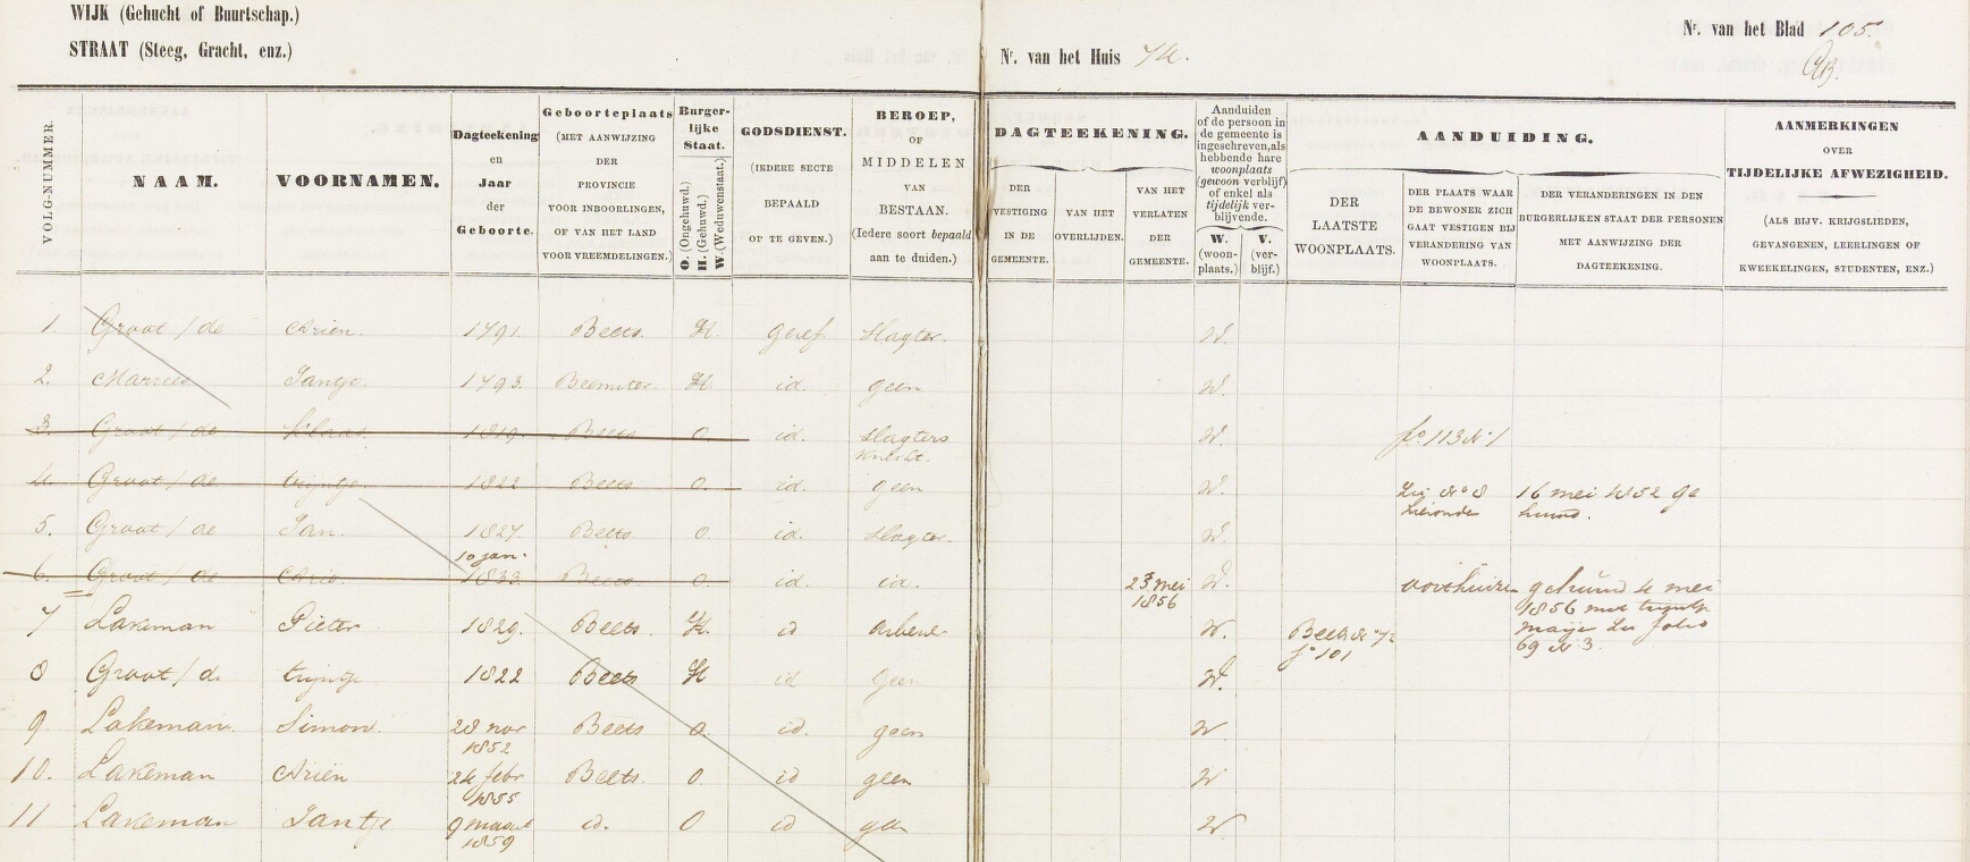 WIJK (Gehucht of Buurtschap.)
STRAAT (Steeg, Gracht, enz.)
Nr. van het Huis 74.
Nr. van het Blad 105.
VOLG-NUMMER.
NAAM.
VOORNAMEN.
Dagteekening
en
Jaar
der
Geboorte.
Geboorteplaats
(MET AANWIJZING
DER
PROVINCIE
VOOR INBOORLINGEN,
OF VAN HET LAND
VOOR VREEMDELINGEN.)
Burger-
lijke
Staat.
O. (Ongehuwd.)
H. (Gehuwd.)
W. (Weduwenstaat.)
GODSDIENST.
(IEDERE SECTE
BEPAALD
OP TE GEVEN.)
BEROEP,
OF
MIDDELEN
VAN
BESTAAN.
(Iedere soort bepaald
aan te duiden.)
DAGTEEKENING.
DER
VESTIGING
IN DE
GEMEENTE.
VAN HET
OVERLIJDEN.
VAN HET
VERLATEN
DER
GEMEENTE.
Aanduiden
of de persoon in
de gemeente is
ingeschreven, als
hebbende hare
woonplaats
(gewoon verblijf)
of enkel als
tijdelijk ver-
blijvende.
W.
(woon-
plaats.)
V.
(ver-
blijf.)
AANDUIDING.
DER
LAATSTE
WOONPLAATS.
DER PLAATS WAAR
DE BEWONER ZICH
GAAT VESTIGEN BIJ
VERANDERING VAN
WOONPLAATS.
DER VERANDERINGEN IN DEN
BURGERLIJKEN STAAT DER PERSONEN
MET AANWIJZING DER
DAGTEEKENING.
AANMERKINGEN
OVER
TIJDELIJKE AFWEZIGHEID.
(ALS BIJV. KRIJGSLIEDEN,
GEVANGENEN, LEERLINGEN OF
KWEEKELINGEN, STUDENTEN, ENZ.)
1. Groot / de Arien. 1791. Beets. H. Geref. Slagter. W.
2. Marees Jantje. 1793. Beemster. H. id. geen W.
3. Groot / de Klaas. 1819. Beets O. id. Slagters W. fo. 113 N. 1
knecht.
4. Groot / de trijntje. 1822 Beets O. id. geen W. Zie No 8 16 mei 1852 ge
hieronder huwd.
5. Groot / de Jan. 1827. Beets O. id. Slagter. W.
10 jan.
6. Groot / de Arie. 1833. Beets O. id. id. 23 mei W. oosthuizen gehuwd 4 mei
1856 1856 met trijntje
7 Lakeman Pieter 1829. Beets. H. id arbeider W. Beets N. 72 maijer zie folio
fo 101 69 N. 3.
8 Groot / de trijntje 1822 Beets H id Geen W.
9. Lakeman. Simon. 28 nov Beets O. id. geen W
1852
10. Lakeman Ariën 24 febr Beets. O. id geen W
1855
11 Lakeman Jantje 9 maart id. O id geen W
1859